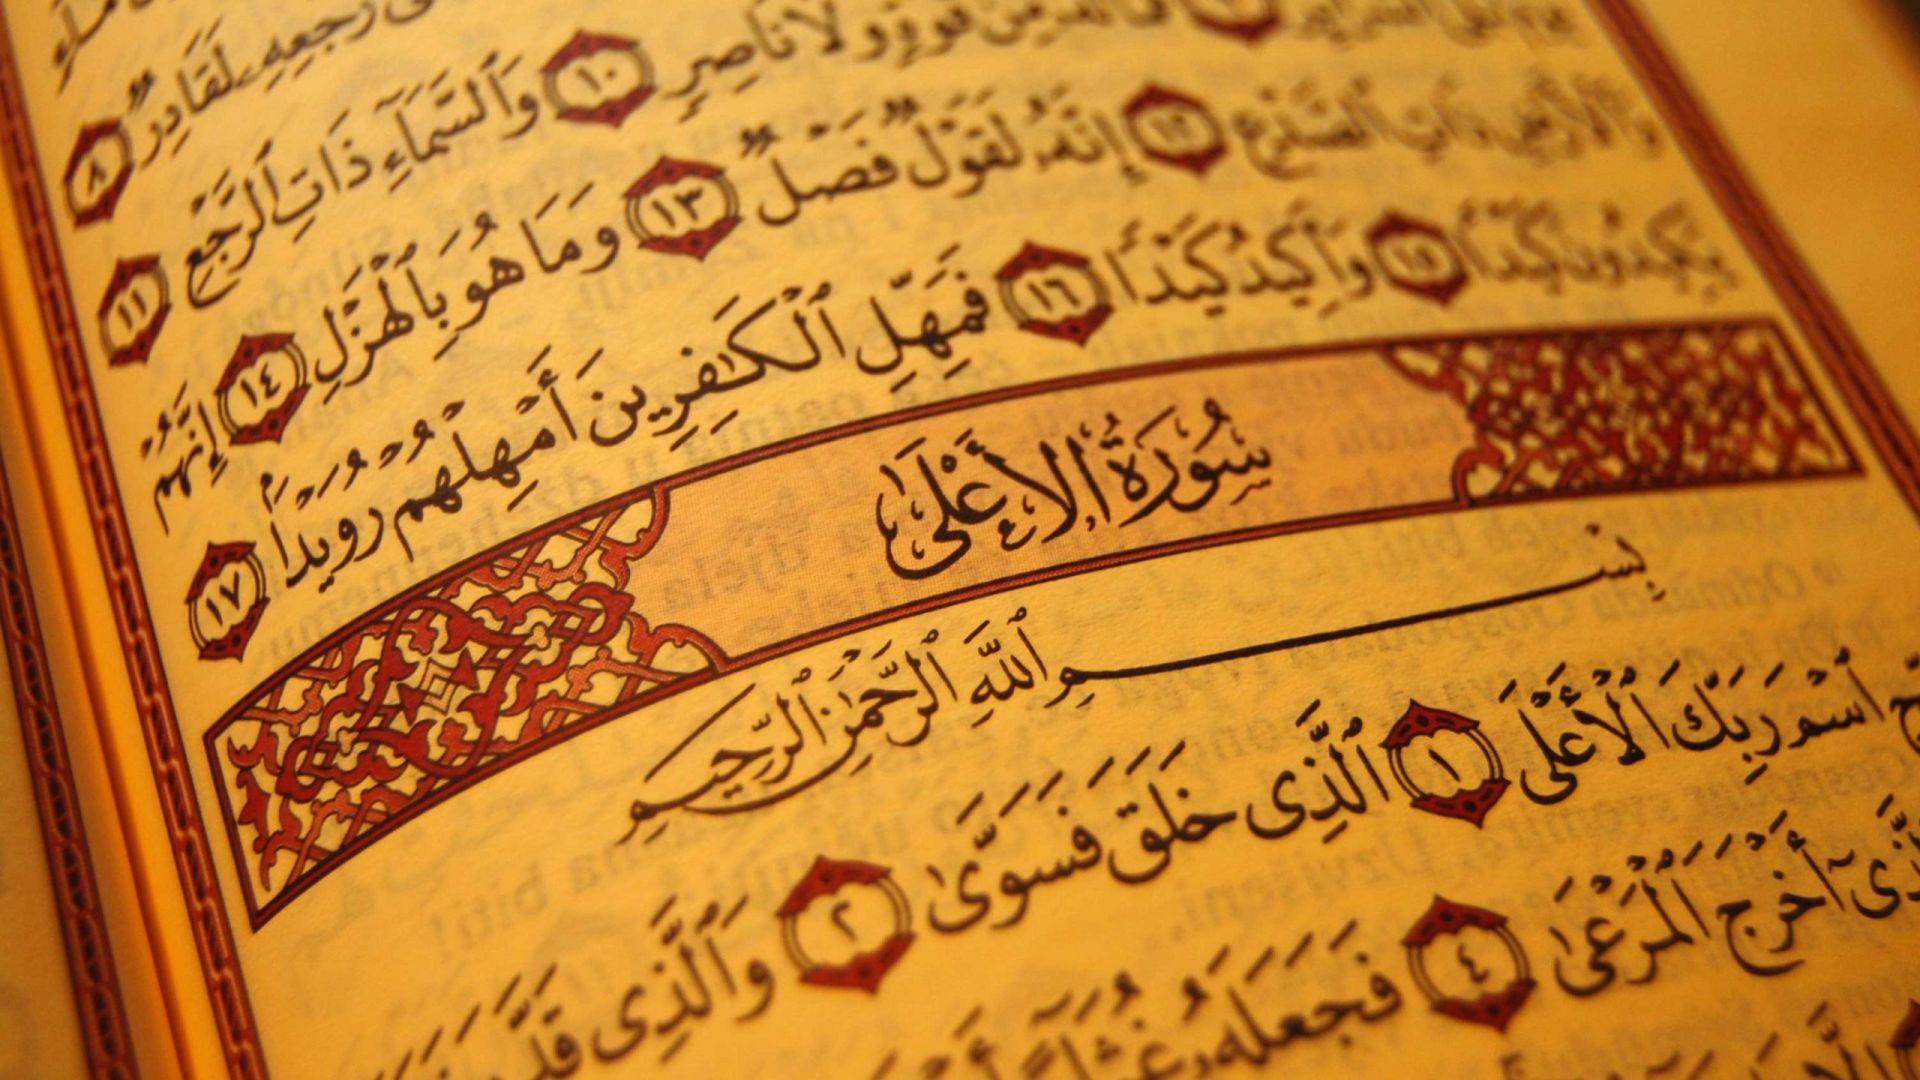 رَجْعِهِۦ لَقَادِرٌ ٨
وَلَا نَاصِرٍ ١٠ وَٱلسَّمَآءِ ذَاتِ ٱلرَّجْعِ ١١
وَٱلْأَرْضِ ذَاتِ ٱلصَّدْعِ ١٢ إِنَّهُۥ لَقَوْلٌ فَصْلٌ ١٣ وَمَا هُوَ بِٱلْهَزْلِ ١٤ إِنَّهُمْ
يَكِيدُونَ كَيْدًا ١٥ وَأَكِيدُ كَيْدًا ١٦ فَمَهِّلِ ٱلْكَٰفِرِينَ أَمْهِلْهُمْ رُوَيْدًۢا ١٧
سُورَةُ الأَعْلَىٰ
بِسْمِ ٱللَّهِ ٱلرَّحْمَٰنِ ٱلرَّحِيمِ
ٱسْمَ رَبِّكَ ٱلْأَعْلَى ١ ٱلَّذِى خَلَقَ فَسَوَّىٰ ٢ وَٱلَّذِى
أَخْرَجَ ٱلْمَرْعَىٰ ٤ فَجَعَلَهُۥ غُثَآءً